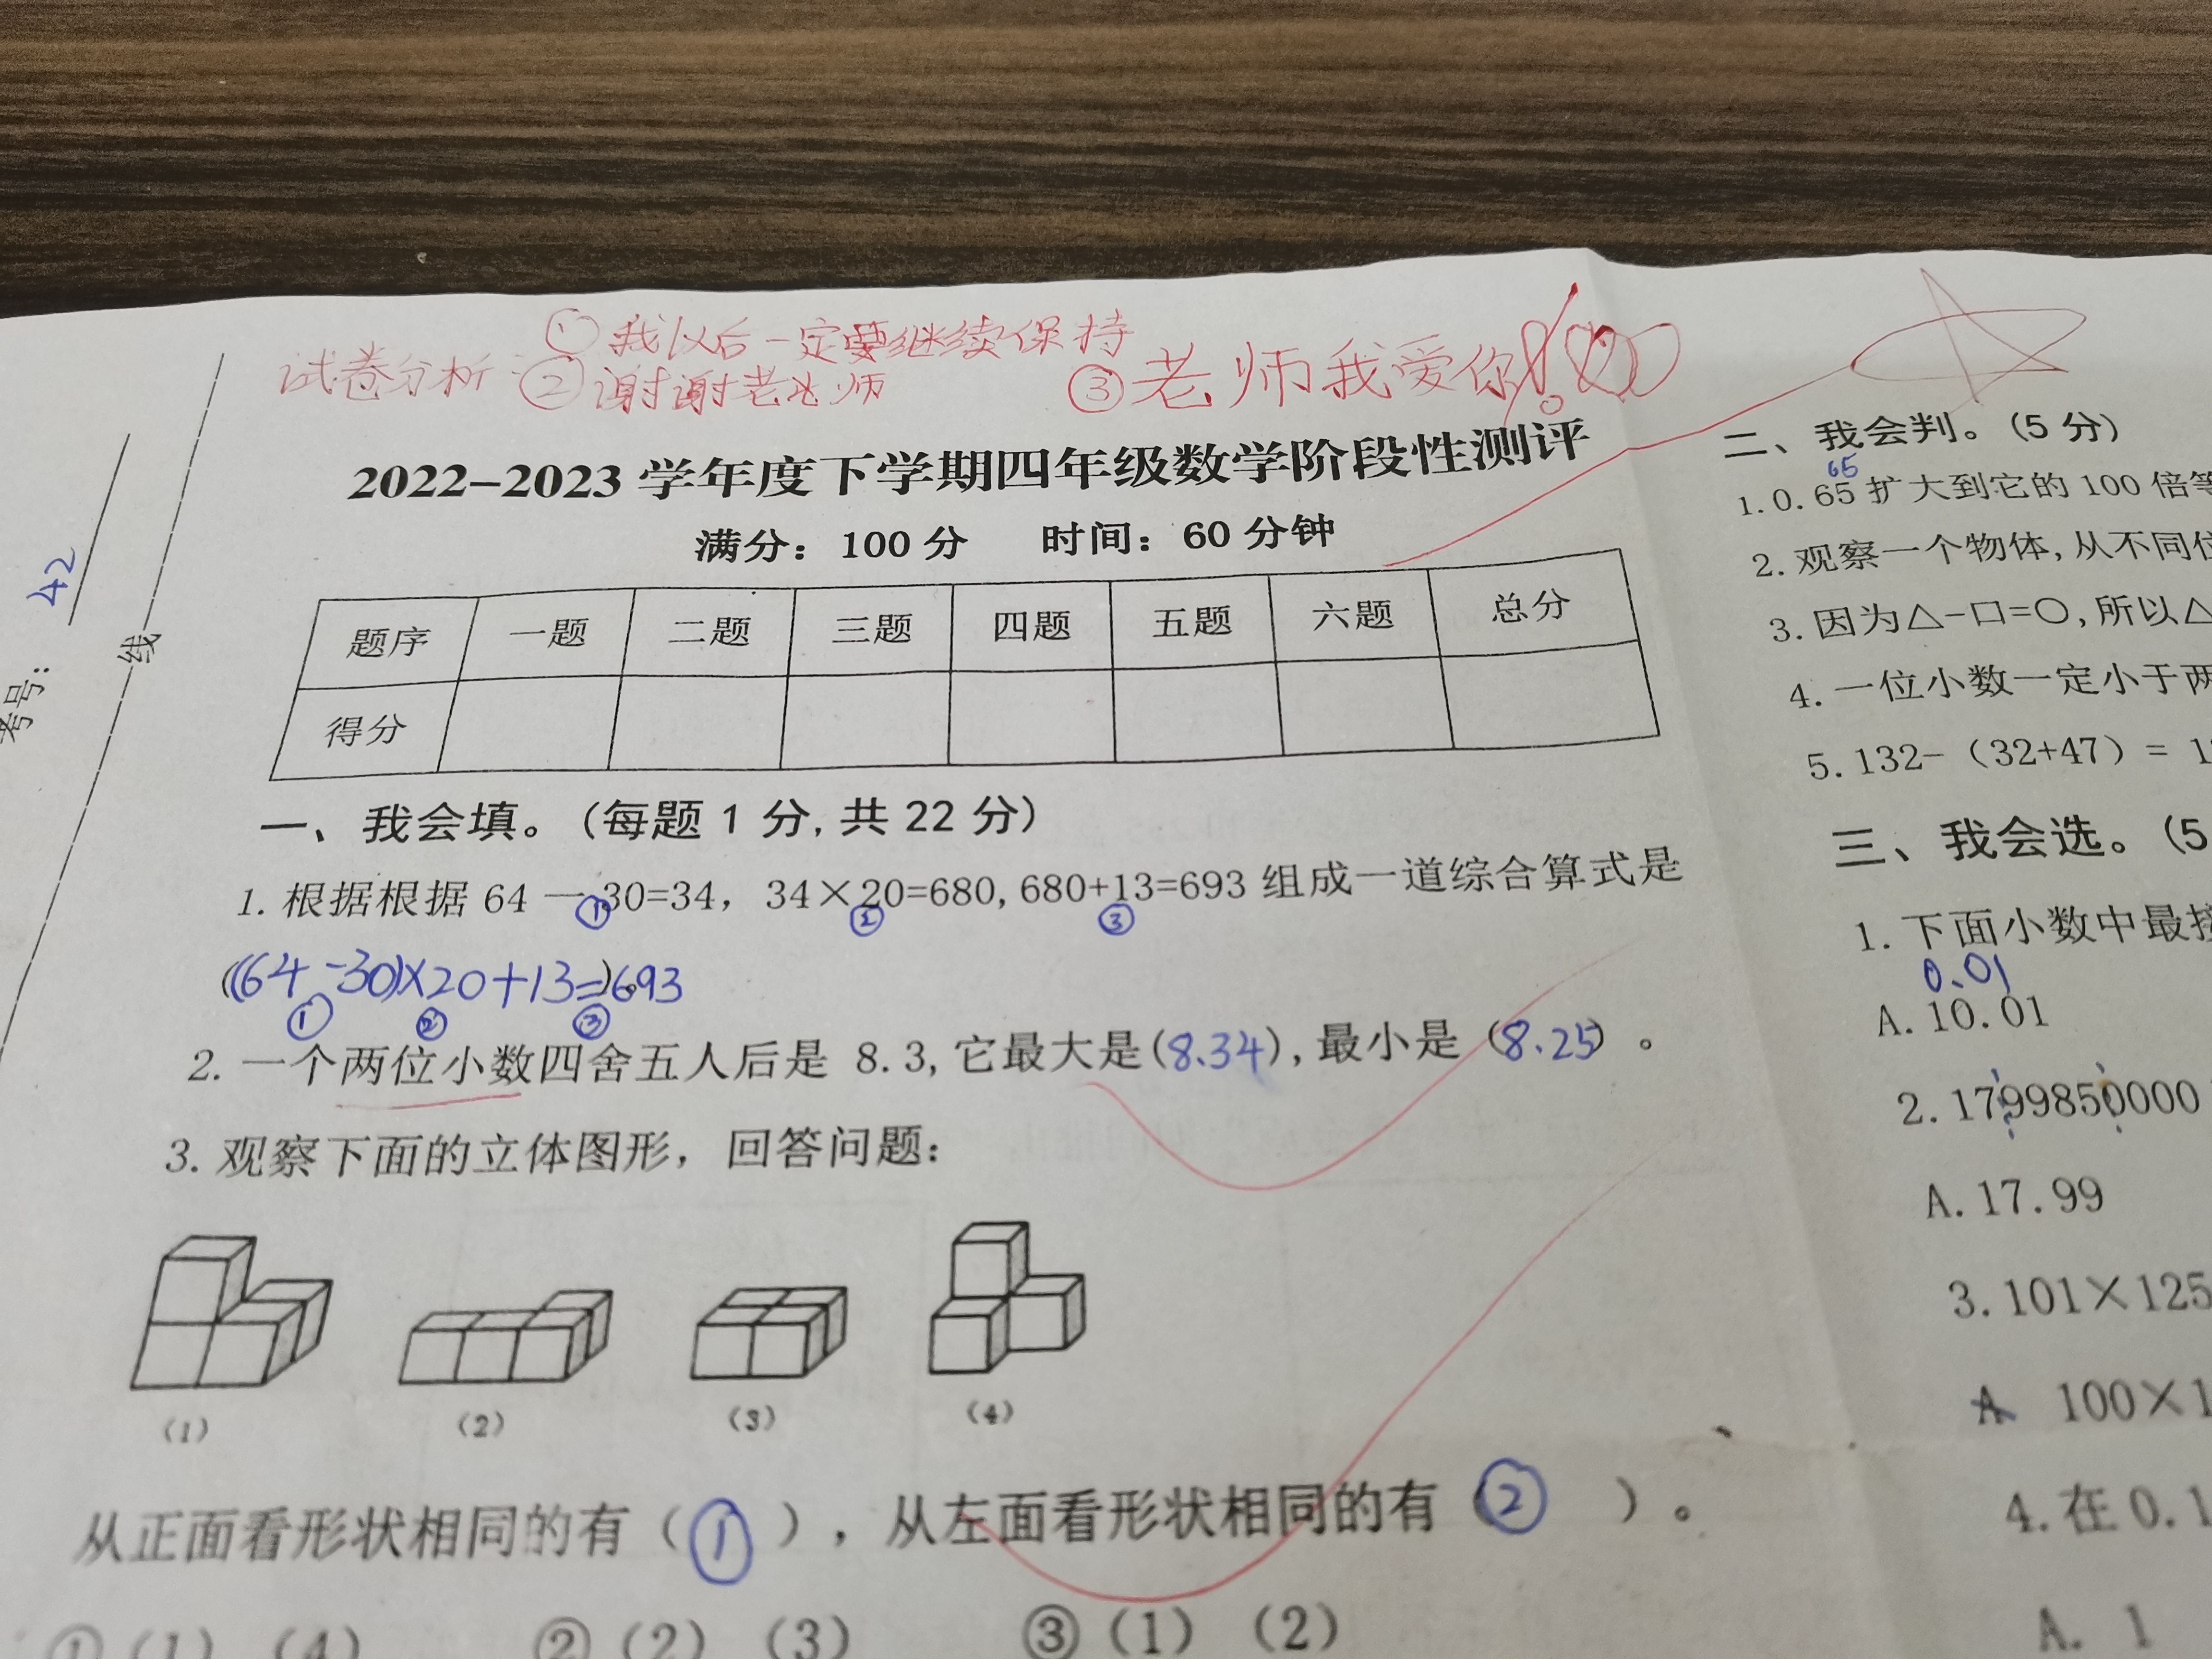 试卷分析:
①我以后一定要继续保持
②谢谢老师
③老师我爱你!
2022-2023学年度下学期四年级数学阶段性测评
满分：100分 时间：60分钟
题序 一题 二题 三题 四题 五题 六题 总分
得分
考号：42
线
一、我会填。(每题1分,共22分)
1.根据根据64—30=34，34×20=680,680+13=693组成一道综合算式是
① ② ③
((64-30)×20+13=)693
① ② ③
2.一个两位小数四舍五人后是 8.3,它最大是(8.34),最小是(8.25)。
3.观察下面的立体图形，回答问题：
(1) (2) (3) (4)
从正面看形状相同的有(①)，从左面看形状相同的有(②)。
①(1) (4) ②(2) (3) ③(1) (2)
二、我会判。(5分)
65
1.0.65扩大到它的100倍等
2.观察一个物体,从不同位
3.因为△-口=○,所以△
4.一位小数一定小于两
5.132-(32+47)= 1
三、我会选。(5
1.下面小数中最接
0.01
A.10.01
2.1799850000
A.17.99
3.101×125
A 100×1
4.在0.1
A. 1